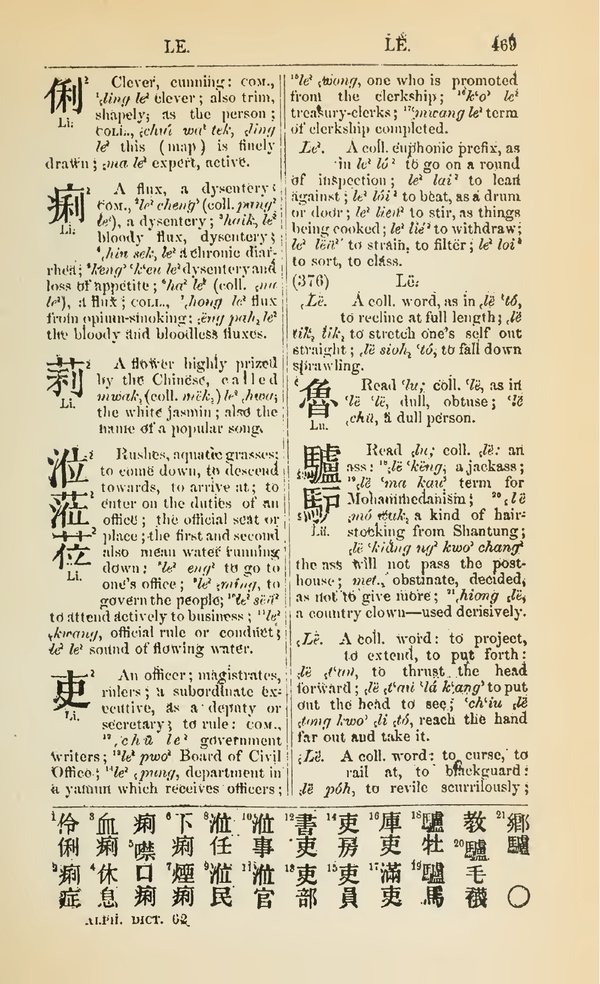 LE. LĔ. 469
俐² Clever, cunning: COM.,
Li. ¹ˏling le² clever; also trim,
shapely, as the person;
COLL., ˏchŭ wa² tek, ˏling
le² this (map) is finely
drawn; ˏma le² expert, active.
痢² A flux, a dysentery:
Li. COM., ²le² cheng² (coll. pang²
le²), a dysentery; ³haik, le²
bloody flux, dysentery;
⁴ˏhin sek, le² a chronic diar-
rhea; ⁵këng² ʻkʻeu le² dysentery and
loss of appetite; ⁶ha² le² (coll.
le²), a flux; COLL., ⁷hong le² flux
from opium-smoking; ˏëng pah, le²
the bloody and bloodless fluxes.
莉 A flower highly prized
Li. by the Chinese, called
mwak, (coll. mëk,) le² ˏhwa,
the white jasmin; also the
name of a popular song.
涖 Rushes, aquatic grasses;
蒞 to come down, to descend
莅 towards, to arrive at; to
Li. enter on the duties of an
office; the official seat or
place; the first and second
also mean water running
down: ⁸le² eng² to go to
one's office; ⁹le² ˏming, to
govern the people; ¹⁰le² sëü²
to attend actively to business; ¹¹le²
ˏkwang, official rule or conduct;
le² le² sound of flowing water.
吏² An officer; magistrates,
Li. rulers; a subordinate ex-
ecutive, as a deputy or
secretary; to rule: COM.,
¹²ˏchü le² government
writers; ¹³le² pwo² Board of Civil
Office; ¹⁴le² ˏpung, department in
a yamun which receives officers;
¹⁵le² ˏwong, one who is promoted
from the clerkship; ¹⁶kʻo² le²
treasury-clerks; ¹⁷ʻmwang le² term
of clerkship completed.
Le². A coll. euphonic prefix, as
in le² ló² to go on a round
of inspection; le² lai² to lean
against; le² lói² to beat, as a drum
or door; le² lieu² to stir, as things
being cooked; le² lié² to withdraw;
le² lëü² to strain, to filter; le² loi²
to sort, to class.
(376) Lë.
ˏLë. A coll. word, as in ˏlë ʻtó,
to recline at full length; ˏlë
tik, tik, to stretch one's self out
straight; ˏlë sioh, ʻtó, to fall down
sprawling.
魯 Read ʻlu; coll. ʻlë, as in
Lu. ʻlë ʻlë, dull, obtuse; ʻlë
ˏchü, a dull person.
驢 Read ˏlu; coll. ˏlë: an
馿 ass: ¹⁸ˏlë ʻkëng, a jackass;
Lü. ¹⁹ˏlë ʻma kau² term for
Mohammedanism; ²⁰ˏlë
ˏmó, a kind of hair-
stocking from Shantung;
ˏlë ʻkiang ng² kwo² chang²
the ass will not pass the post-
house; met., obstinate, decided,
as not to give more; ²¹ˏhiong ˏlë,
a country clown—used derisively.
ˏLë. A coll. word: to project,
to extend, to put forth:
ˏlë ˏtʻau, to thrust the head
forward; ˏlë ˏtʻau ʻlá kʻang² to put
out the head to see; ʻchʻiu ˏlë
ˏtong kwo² ˏli ˏtó, reach the hand
far out and take it.
ˏLë. A coll. word: to curse, to
rail at, to blackguard:
ˏlë póh, to revile scurrilously;
¹伶俐 ²痢症
³血痢 ⁴休息
痢 ⁵噤口痢
⁶下痢 ⁷煙痢
⁸涖任 ⁹涖民
¹⁰涖事 ¹¹涖官
¹²書吏 ¹³吏部
¹⁴吏房 ¹⁵吏員
¹⁶庫吏 ¹⁷滿吏
¹⁸驢牡 ¹⁹驢馬
教 ²⁰驢毛襪
²¹鄉驢 〇
ALPH. DICT. 62